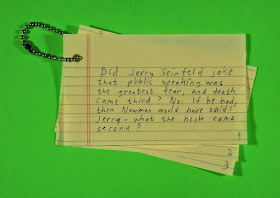 Did Jerry Seinfeld joke
that public speaking was
the greatest fear, and death
came third? No. If he had,
then Newman would have said:
Jerry - what the heck came
second?
1
2
3